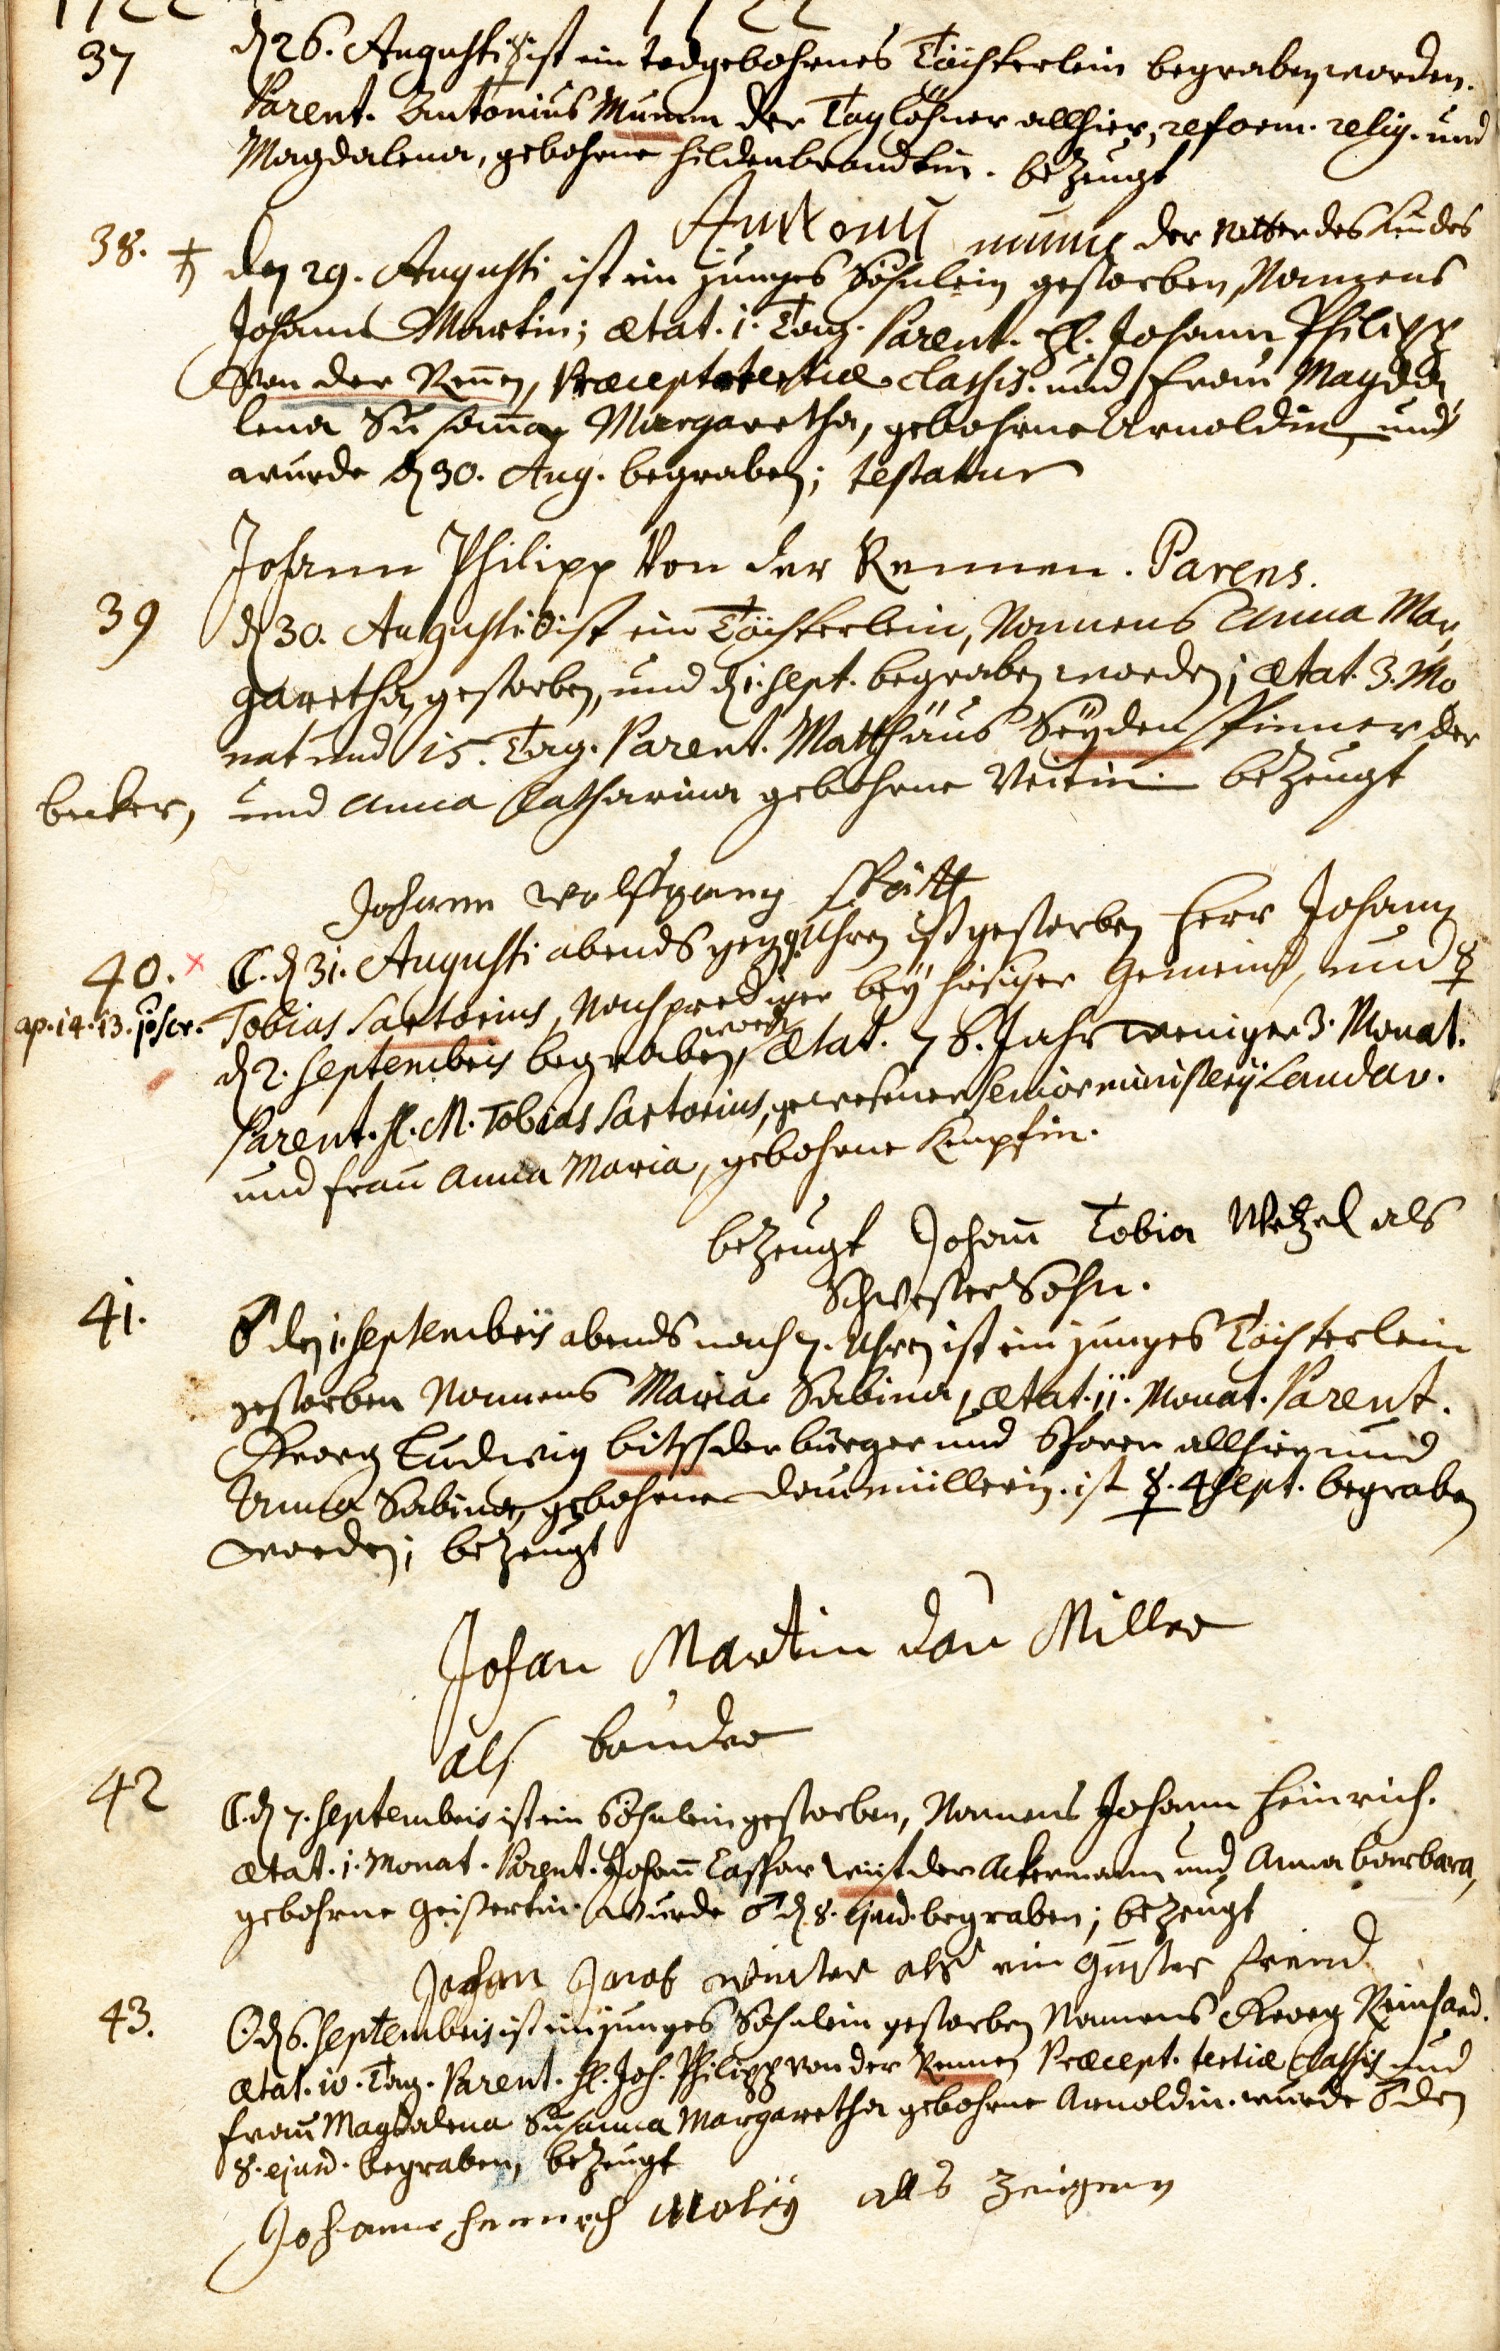 1722 1722
37 d 26. Augusti ist ein todgebohrnes Töchterlein begraben worden.
Parent. Antonius Mumm der Taglöhner allhier, reform. relig. und
Magdalena, gebohrne Hildenbrandtin. bezeugt
Antony der Vatter des Kindes
38. den 29. Augusti ist ein junges Söhnlein gestorben, Namens
Johann Martin; ætat. 1. Tag. Parent. H. Johann Philipp
Von der Rennen, Præcept. tertiæ classis. und Frau Magda
lena Susanna Margaretha, gebohrne Arnoldin, und
wurde d 30. Aug. begraben; testatur
Johann Philipp Von der Rennen. Parens.
39 d 30. Augusti ist ein Töchterlein, Namens Anna Mar,
garetha, gestorben, und d 1. Sept. begraben worden; ætat. 3. Mo
nat und 15. Tag. Parent. Matthäus Seyden Spinner der
becker, und Anna Catharina gebohrne Veitin. bezeugt
Johann Wolfgang Spätt
40. ☾. d 31. Augusti abends gegen 9. Uhren ist gestorben Herr Johann
ap. 14. 13. Tobias Sartorius, Nachprediger bey hiesiger Gemeind, und ☿
d 2. Septembris begraben worden, Ætat. 76. Jahr weniger 3. Monat.
Parent. H. M. Tobias Sartorius, gewesener Senior ministerij Landav.
und Frau Anna Maria, gebohrne Knipsin.
bezeugt Johann Tobia Wetzel als
Schwester Sohn.
41. ♂ den 1. Septembris abends nach 7. Uhren ist ein junges Töchterlein
gestorben Namens Maria Sabina, ætat. 11. Monat. Parent.
Georg Ludwig Bitsch der burger und Sporer allhier, und
Anna Sabina, gebohrne Daumüllerin. ist ☿. 4 Sept. begraben
worden; bezeugt
Johan Martin Dau Miller
als
42 ☾. d 7. Septembris ist ein Söhnlein gestorben, Namens Johann Heinrich.
ætat. 1. Monat. Parent. Johann Caspar der Ackermann und Anna barbara,
gebohrne Geissertin. wurde ♂ d 8. ejusd. begraben; bezeugt
Johan Jacob Winter als ein Freind
43. ☉ d 6. Septembris ist ein junges Söhnlein gestorben Namens Georg Reinhard.
ætat. 10. Tag. Parent. H. Joh. Philipp von der Rennen Præcept. tertiæ classis und
Frau Magdalena Susanna Margaretha gebohrne Arnoldin. wurde ♂ den
8. ejusd. begraben, bezeugt
Johann Henrich als Zeigen